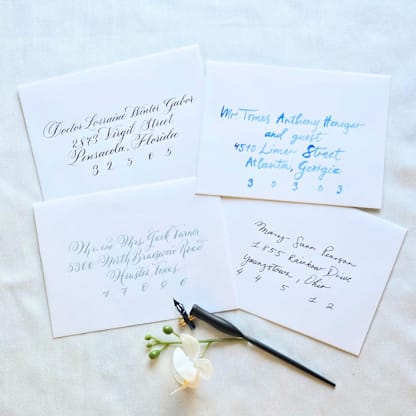 Doctor Lorraine Winter Gabor
2873 Virgil Street
Pensacola, Florida
3 2 5 0 5
Mr Tomas Anthony Honegar
and guest
4510 Limer Street
Atlanta, Georgia
3 0 3 0 3
Mr. and Mrs. Jack Turner
5300 North Braeswood Road
Houston Texas
7 7 0 0 0
Mary Sann Pearson
1155 Rainbow Drive
Youngstown, Ohio
4 4 5 1 2